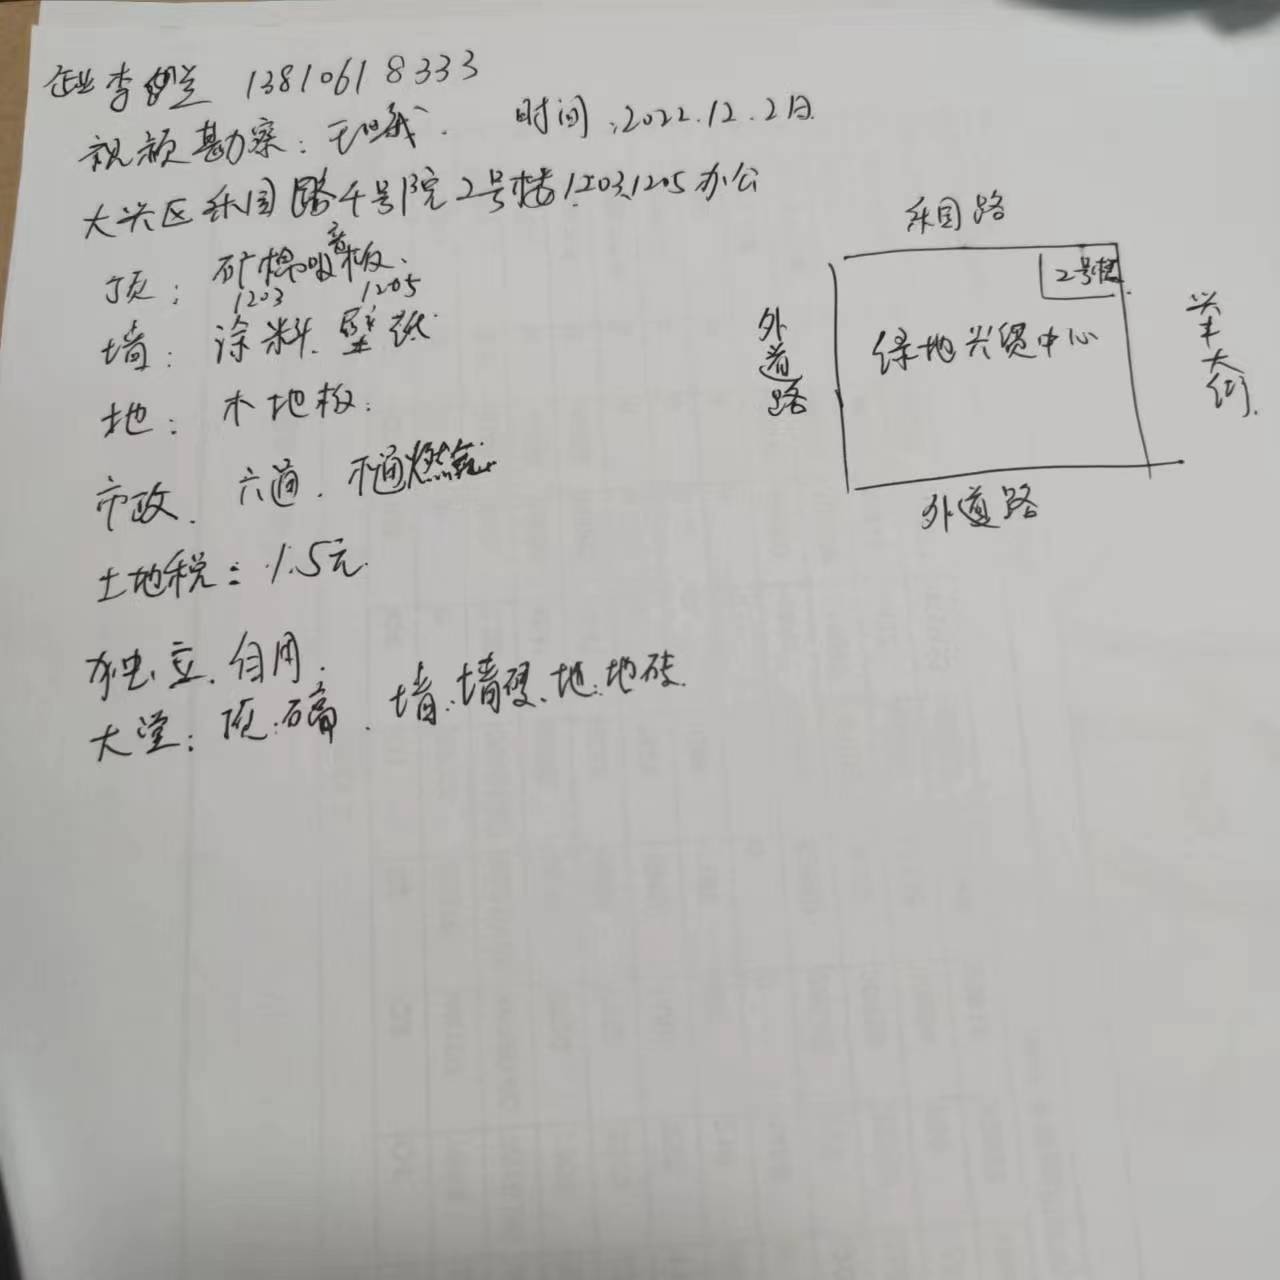 企业李 13810618333
视频勘察: 时间:2022.12.2日
大兴区乐园路4号院2号楼1203,1205办公
顶: 矿棉吸音板.
1203 1205
墙: 涂料. 壁纸
地: 木地板.
市政. 六通. 不通燃气.
土地税: 1.5元.
独立.自用.
大堂: 顶:石膏. 墙:墙砖. 地:地砖.
乐园路
2号楼
绿地兴贸中心
外道路
兴丰大街.
外道路